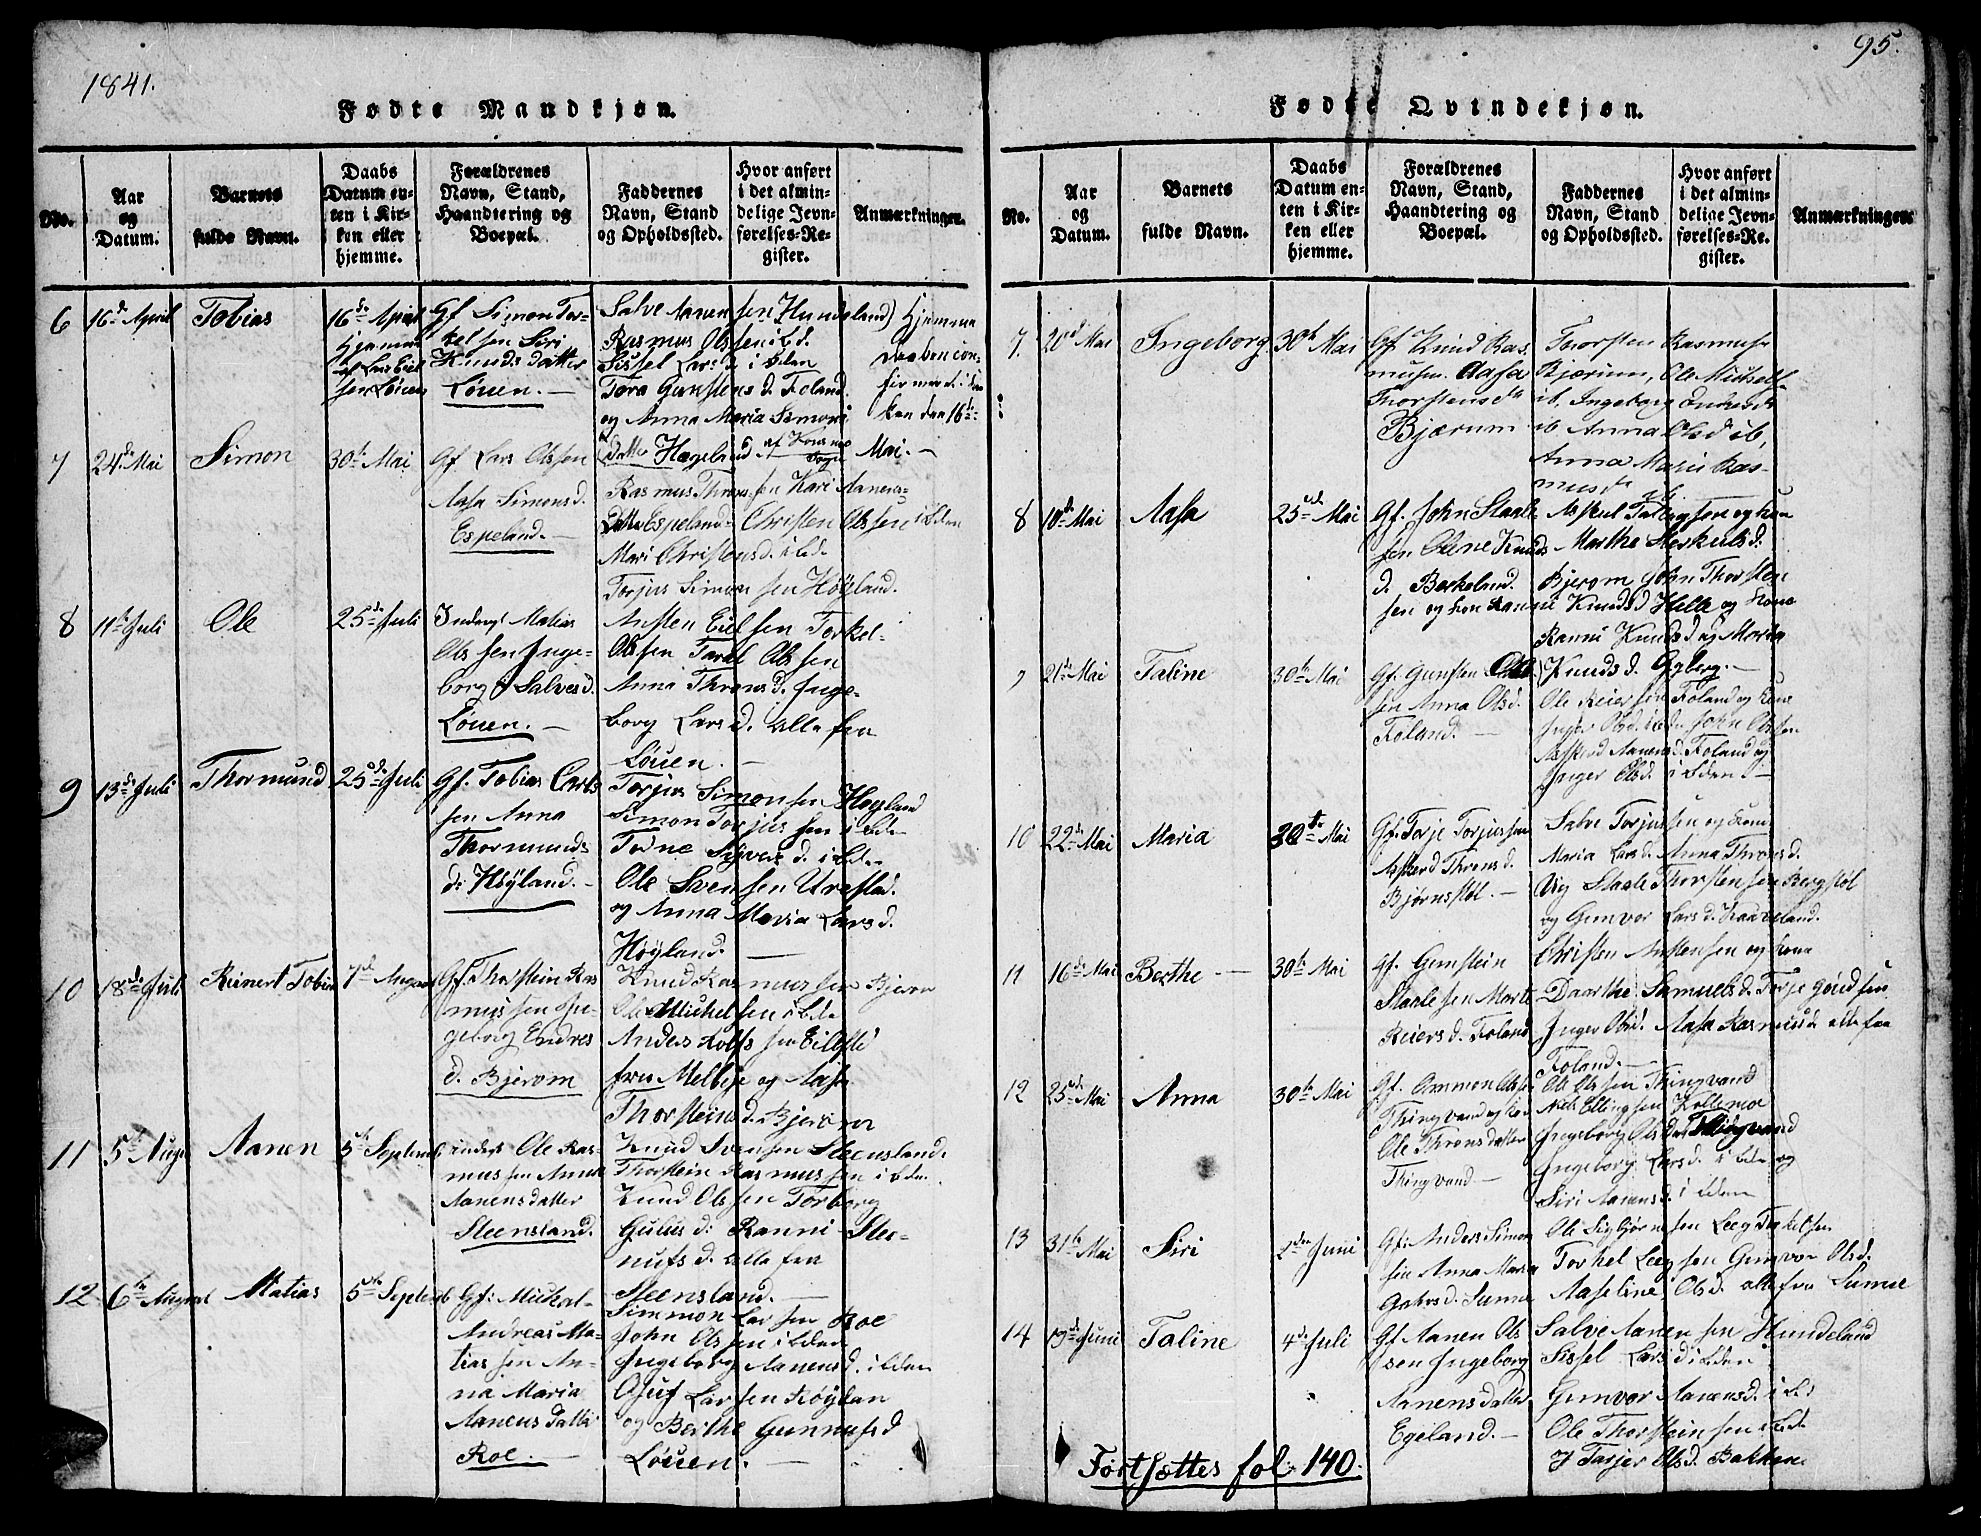 1841.
Fødte Mandkjøn.
No.
Aar
og
Datum.
Barnets
fulde Navn.
Daabs
Datum en-
ten i Kir-
ken eller
hjemme.
Forældrenes
Navn, Stand,
Haandtering og
Boepæl.
Faddernes
Navn, Stand
og Opholdssted.
Hvor anført
i det almin-
delige Jevn-
førelses-Re-
gister.
Anmærkninger.
6
16d April
Tobias
16de April
hjemme
af Lars Eiel
sen Løuen
Gf Simon Tor-
kelsen Siri
Knuds datter
Løuen. —
Salve Aanensen Hundsland
Rasmus Olsen ibd.
Sissel Lars d. i bden
Tora Gunstens d. Foland
og Anna Maria Simons
datter Hægeland af
Sogn
hjemme
daaben con-
firmered i Kir
ken den 16de
Mai. —
7
24de Mai
Simon
30te Mai
Gf Lars Olssen
Aasa Simons d.
Espeland. —
Rasmus Thronssen Kari Aanens-
datter Espeland Christen Olssen ibden
Mari Christens d. ibd.
Torjus Simonsen Høyland.
8
11te Juli
Ole
25de Juli
Inderst Matias
Olssen Inge-
borg Salves d.
Løuen. —
Ansten Eielsen Torkel
Olssen Tarel Olssen
Anna Throns d. Inge-
borg Lars d. alle fra
Løuen. —
9
13de Juli
Thormund
25de Juli
Gf. Tobias Carls
sen Anna
Thormunds
d: Høyland. —
Torjus Simonsen Høyland
Simon Torjussen ibden
Tone Syvers d. ibden
Ole Svensen Urestad.
og Anna Maria Lars d.
Høyland. —
10
18de Juli
Reinert Tobias
7de August
Gf. Thorstein Ras
mussen In-
geborg Endres
d. Bjerom
Knud Rasmussen Bjerom
Ole Mickelsen ibden
Anders Rolfssen Eilefst
fra Melbye og Aasa
Thorsteins d. Bjerom
11
5te August
Aanen
5te Septemb
inderst Ole Ras-
mussen Anna
Aanens datter
Steensland.
Knud Svensen Steensland.
Thorstein Rasmussen ibden
Knud Olssen Torborg
Gulus d: Ranni Ste-
nufs d. alle fra
Steensland. —
12
6te August
Matias
5te Septemb
Gf: Mickal-
Andreas Ma-
tiassen An-
na Maria
Aanens datter
Roe. —
Simmon Larsen Roe
John Olssen ibden
Ingeborg Aanens d. ibden
Osuf Larsen Høylan
og Berthe Gunnufs d
Løuen. —
95.
Fødte Qvindekjøn.
No.
Aar
og
Datum.
Barnets
fulde Navn.
Daabs
Datum en-
ten i Kir-
ken eller
hjemme.
Forældrenes
Navn, Stand,
Haandtering og
Boepæl.
Faddernes
Navn, Stand
og Opholdssted.
Hvor anført
i det almin-
delige Jevn-
førelses-Re-
gister.
Anmærkninger.
7.
20d Mai
Ingeborg
30te Mai
Gf. Knud Ras
musen. Aasa
Thorstensdr
Bjærum
Thorsten Rasmusen
Bjærum, Ole Mickels
ib, Ingeborg Endresdr
ib Anna Olsd ib,
Anna Marie Ras-
musdr
8
10de Mai
Aasa
25de Mai
Gf. John Staale
sen Olene Knuds
d. Berkeland.
Askul Tallagsen og kone
Marthe Heskuls d.
Bjerom John Thorsten
sen og kone Ranni Knuds d Helle og kone
Ranni Knuds d og Maria
Knuds d. Egberg. —
9
21de Mai
Taline
30te Mai
Gf. Gunsten Ols
sen Anna Ols d.
Foland. —
Ole Reiersen Foland og kone
Inger Ols d. ibden John Olssen
Asberd Aanens d. Foland og
Inger Ols d. i bden. —
10
22de Mai
Maria
30te Mai
Gf. Torje Torjussen
Asberd Throns d.
Bjørnstøl. —
Salve Torjussen og kone
Maria Lars d. Anna Throns d.
Vig Staale Thorstensen Bergstøl
og Gunvor Lars d. Kaaveland.
11
16de Mai
Berthe —
30te Mai
Gf. Gunstein
Staalesen Marte
Reiers d. Foland
Christen Anstensen og kone
Daarthe Samuels d. Torje Gondsen
Inger Ols d. Aasa Rasmus d. alle fra
Foland. —
12
25de Mai
Anna
30te Mai
Gf. Ommon Olssen
Thingvand og kone
Ole Throns datter
Thingvand —
Ole Olssen Thingvand
Niels Ellingsen Kollemoe
Ingeborg Ols d Thingvand
Ingeborg Lars d. i bden og
Siri Aanens d. i bden
13
31te Mai
Siri
2den Juni
Gf: Anders Simon
sen Anna Maria
Gabrs d. Sunne
Ole Sigbjørnsen Leeg Torkelsen
Torkel Leegsen Gunvor Ols d.
Aaseline Ols d. alle fra Sunne
14
19de Juni
Taline
4de Juli
Gf Aanen Ols
sen Ingeborg
Aanens datter
Egeland. —
Salve Aanensen Hundeland
Sissel Lars d i bden
Gunvor Aanens d. i bd
Ole Thorsteinsen ibd.
Tarjer Ols d. Bakken
Fortsættes fol 140.